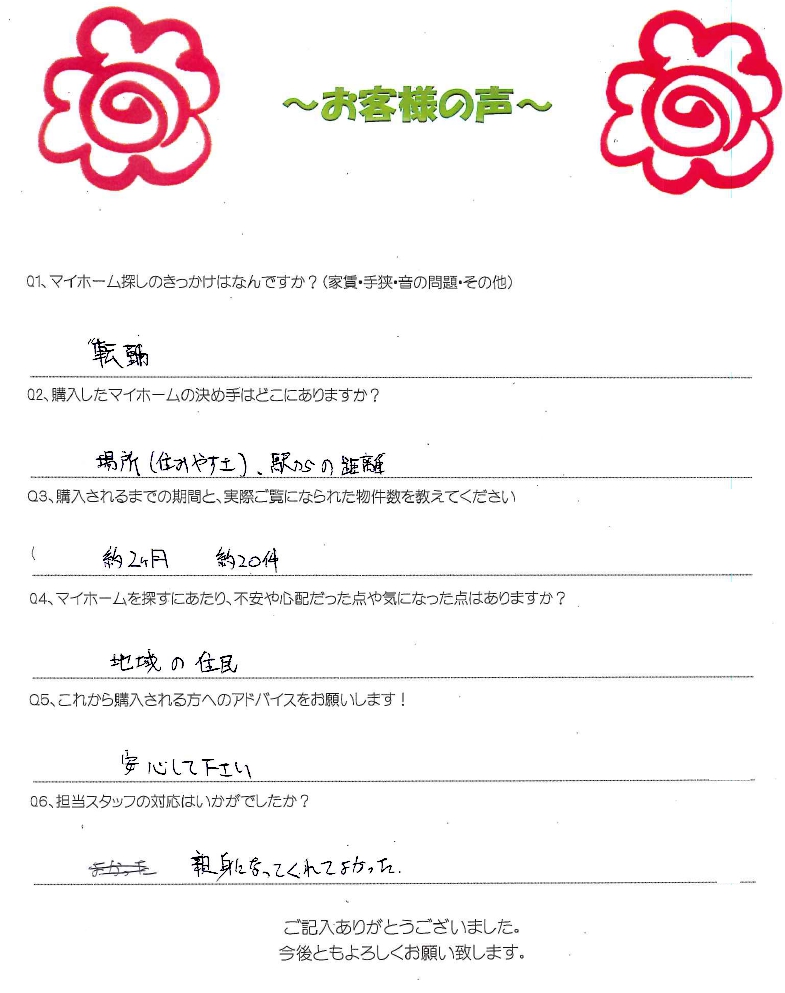 ～お客様の声～
Q1、マイホーム探しのきっかけはなんですか？（家賃・手狭・音の問題・その他）
転勤
Q2、購入したマイホームの決め手はどこにありますか？
場所（住みやすさ）、駅からの距離
Q3、購入されるまでの期間と、実際ご覧になられた物件数を教えてください
約2ヶ月 約20件
Q4、マイホームを探すにあたり、不安や心配だった点や気になった点はありますか？
地域の住民
Q5、これから購入される方へのアドバイスをお願いします！
安心して下さい
Q6、担当スタッフの対応はいかがでしたか？
よかった 親身になってくれてよかった.
ご記入ありがとうございました。
今後ともよろしくお願い致します。